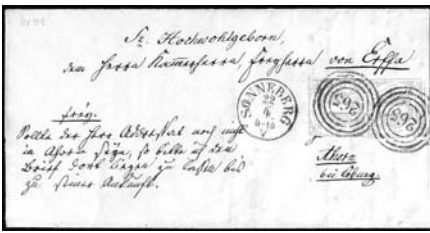 Sr. Hochwohlgeborn,
dem Herrn Kammerherrn, Freyherrn von Erffa
frey.
Sollte der Herr Addressat noch nicht
in Ahorn seyn, so bitte ich den
Brief dort liegen zu lassen bis
zu seiner Ankunft.
SONNEBERG
22
265
265
Ahorn
bei Coburg.